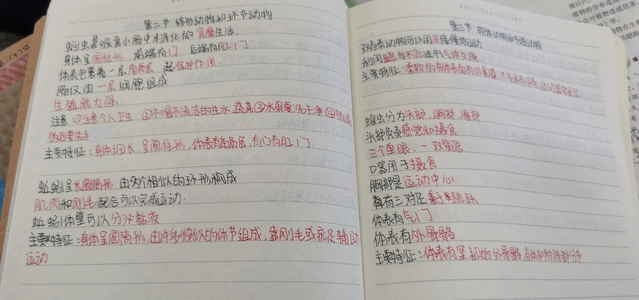 第二节 线形动物和环节动物
蛔虫是吸食小肠中半消化的食糜生活.
身体呈圆柱形 前端有口 后端有肛门
体表包裹着一层角质层 起保护作用
肠仅由一层细胞组成
生殖能力强.
注意:①注意个人卫生 ②不喝不清洁的生水,蔬菜③水果要洗干净④
饭后要洗手
主要特征:身体细长,呈圆柱形,体表有角质层,有口有肛门
蚯蚓呈长圆筒形,由各个相似的环形构成
肌肉和刚毛配合可以完成运动.
蚯蚓体壁可以分泌黏液
主要特征:身体呈圆筒形,由许多彼此相似的体节组成,靠刚毛或疣足辅助
运动
第三节 软体动物和节肢动物
双壳类动物可以用足缓慢运动
利用鳃与水流进行气体交换
主要特征:柔软的身体表面有外套膜,大多具有贝壳,运动器官是足
蝗虫分为头部,胸部,腹部
头部负责感觉和摄食
三个单眼,一对复眼
口器用于摄食
胸部是运动中心
具有三对足善于跳跃
体表有气门
体表有外骨骼
主要特征:体表有坚韧的外骨骼,身体和附肢都分节